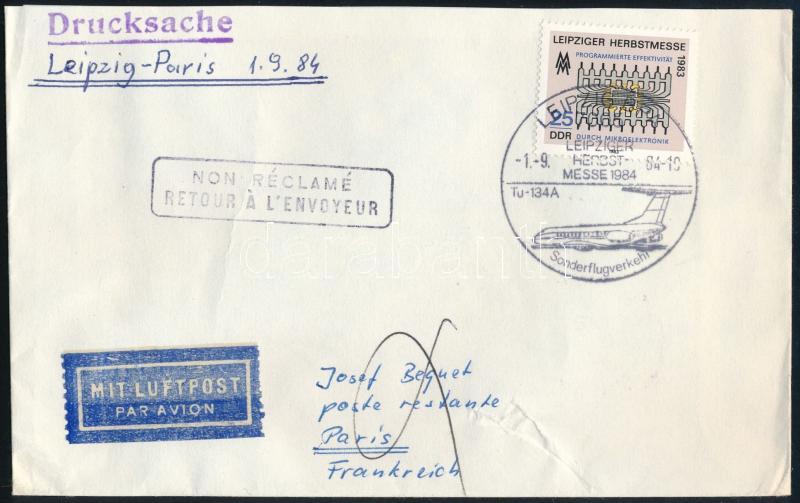 Drucksache
Leipzig-Paris 1.9.84
LEIPZIGER HERBSTMESSE
1983
PROGRAMMIERTE EFFEKTIVITÄT
25
DDR DURCH MIKROELEKTRONIK
LEIPZIG
LEIPZIGER
-1.-9. HERBST- 84-10
MESSE 1984
Tu-134A
Sonderflugverkehr
NON RÉCLAMÉ
RETOUR À L'ENVOYEUR
MIT LUFTPOST
PAR AVION
Josef Bequet
poste restante
Paris
Frankreich